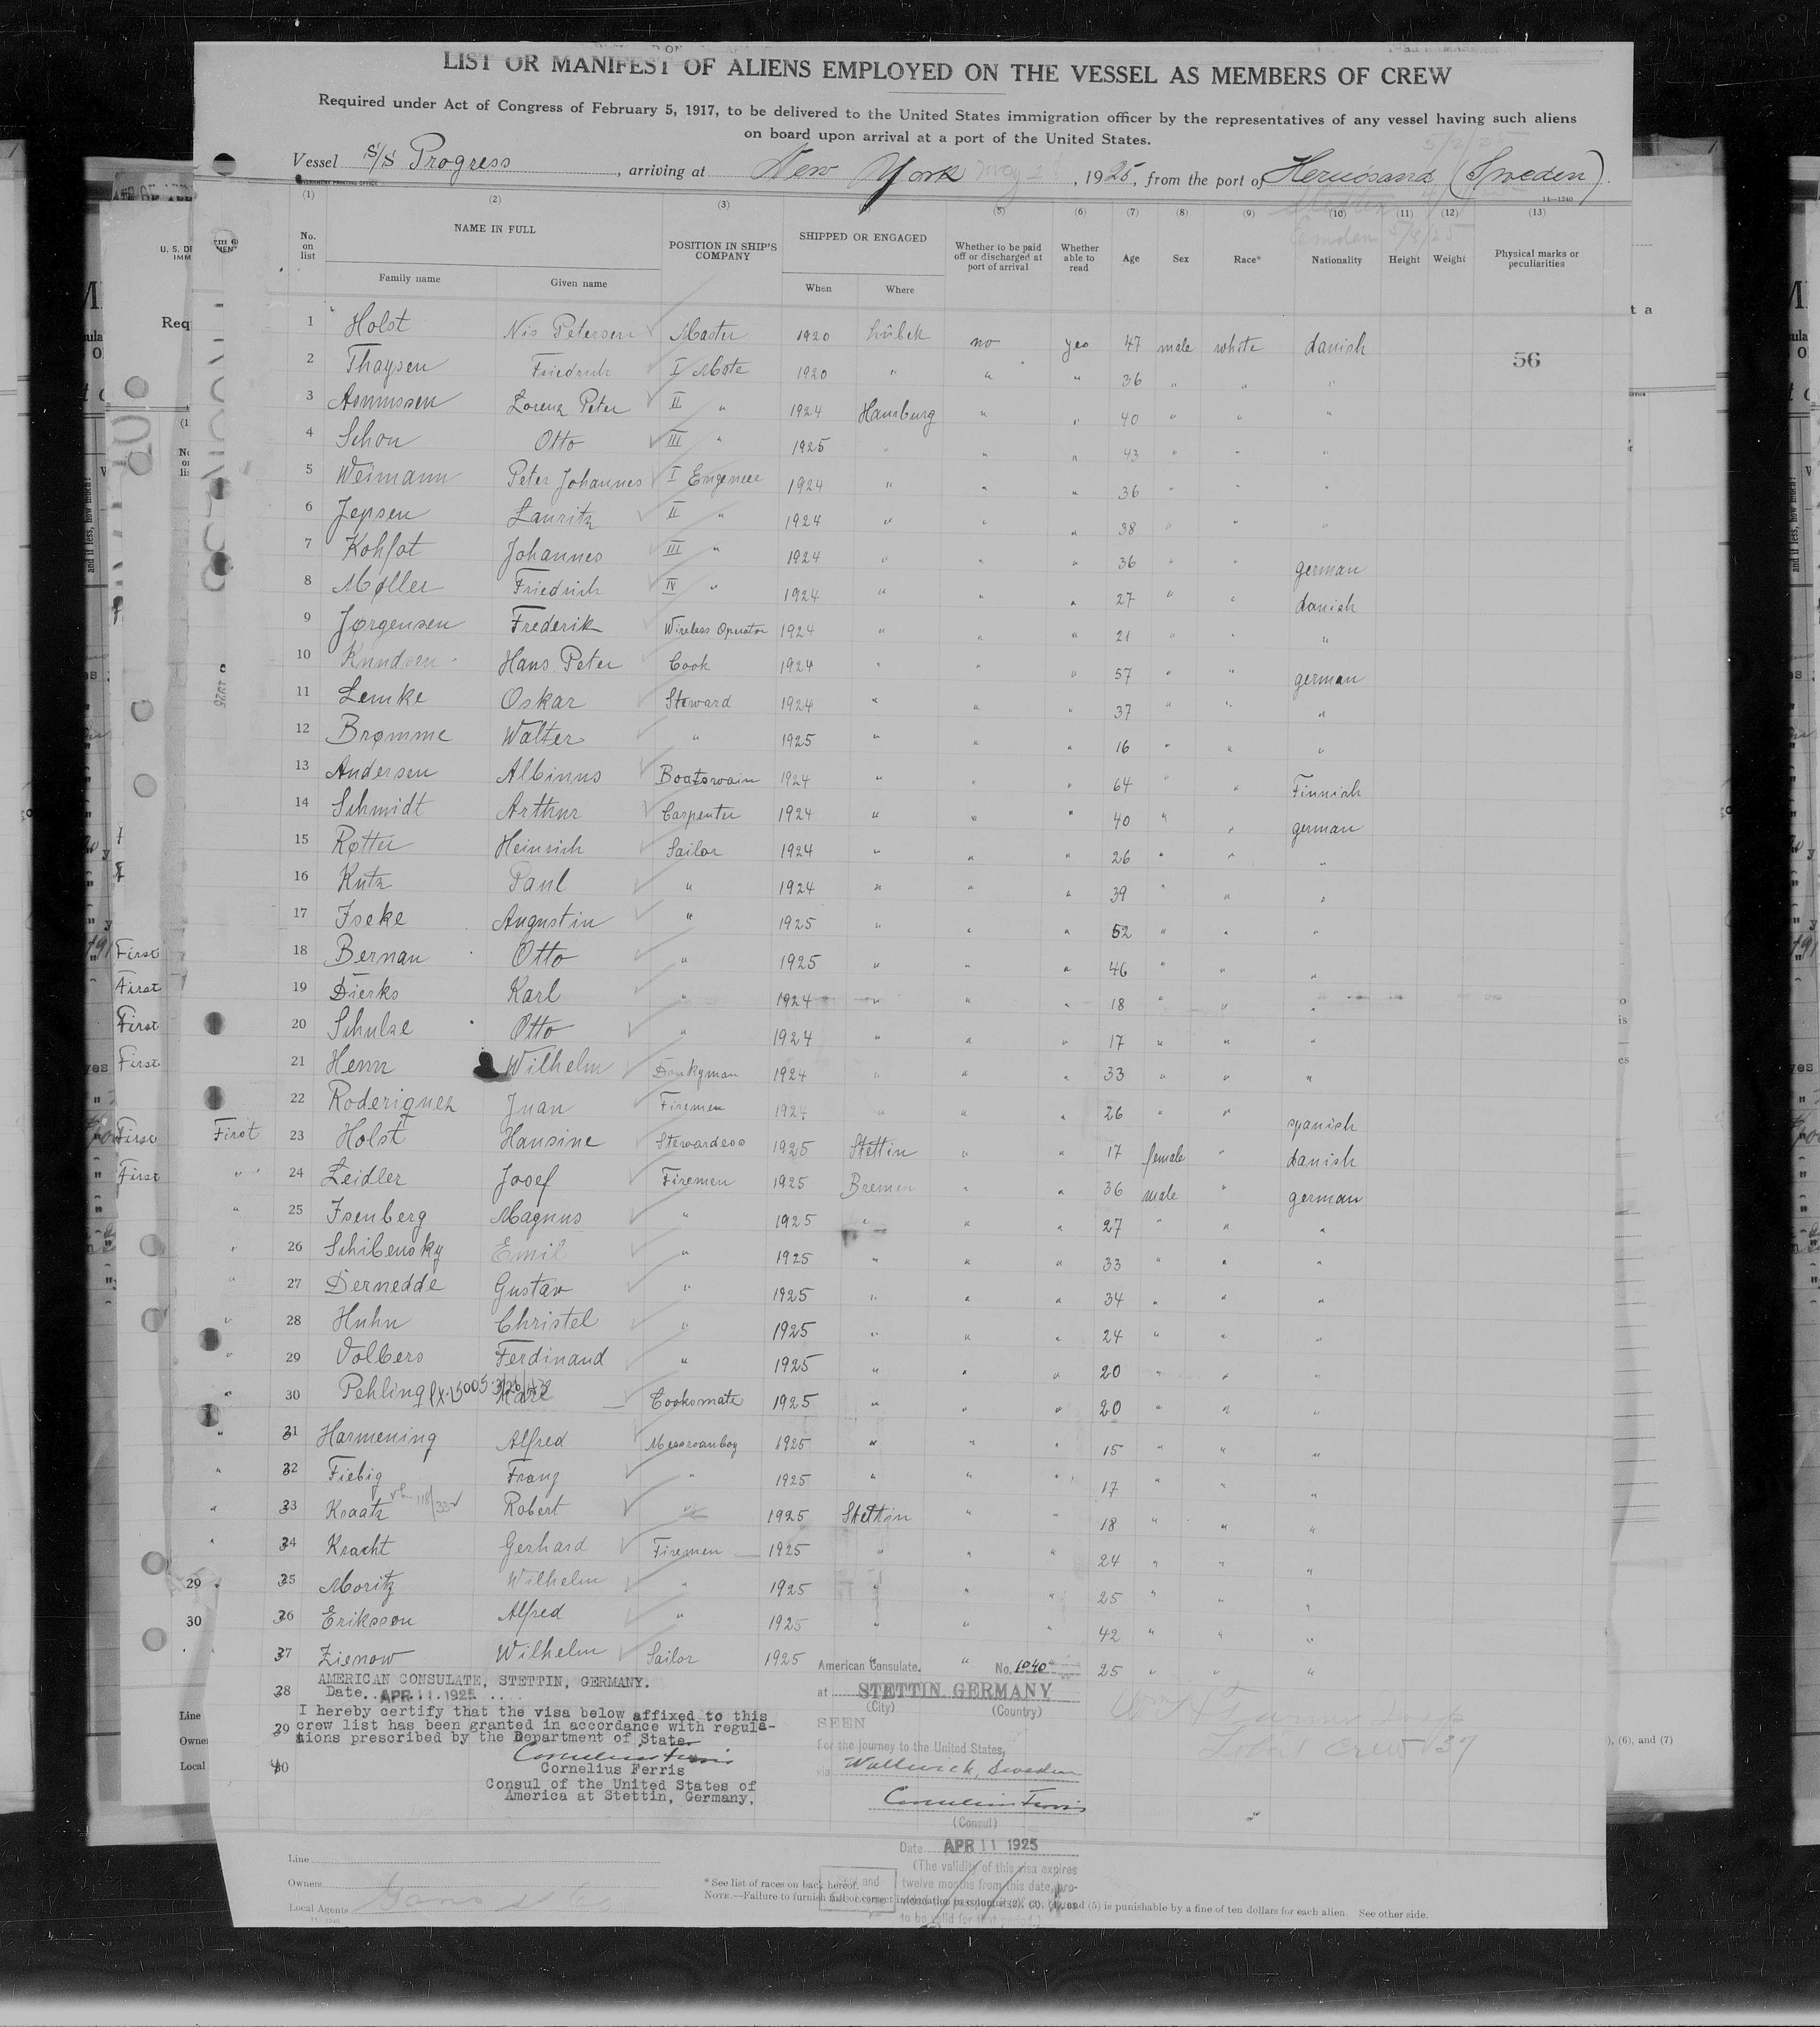 LIST OR MANIFEST OF ALIENS EMPLOYED ON THE VESSEL AS MEMBERS OF CREW
Required under Act of Congress of February 5, 1917, to be delivered to the United States immigration officer by the representatives of any vessel having such aliens
on board upon arrival at a port of the United States.
Vessel S/S Progress, arriving at New York May 2, 1925, from the port of Hernösand (Sweden).
Emden 5/8/25
(1) (2) (3) (5) (6) (7) (8) (9) (10) (11) (12) (13)
No. on list NAME IN FULL Family name Given name POSITION IN SHIP'S COMPANY SHIPPED OR ENGAGED When Where Whether to be paid off or discharged at port of arrival Whether able to read Age Sex Race* Nationality Height Weight Physical marks or peculiarities
1 Holst Nis Petersen Master 1920 Lübek no yes 47 male white danish
56
2 Thaysen Friedrich I Mate 1920 " " " 36 " " "
3 Asmussen Lorenz Peter II " 1924 Hamburg " " 40 " " "
4 Schon Otto III " 1925 " " " 43 " " "
5 Weimann Peter Johannes I Engeneer 1924 " " " 36 " " "
6 Jepsen Lauritz II " 1924 " " " 38 " " "
7 Kohfot Johannes III " 1924 " " " 36 " " german
8 Møller Friedrich IV " 1924 " " " 27 " " danish
9 Jørgensen Frederik Wireless Operator 1924 " " " 21 " " "
10 Knudsen Hans Peter Cook 1924 " " " 57 " " german
11 Lemke Oskar Steward 1924 " " " 37 " " "
12 Brømme Walter " 1925 " " " 16 " " "
13 Andersen Albinus Boatswain 1924 " " " 64 " " Finnish
14 Schmidt Arthur Carpenter 1924 " " " 40 " " german
15 Røtter Heinrich Sailor 1924 " " " 26 " " "
16 Kutz Paul " 1924 " " " 39 " " "
17 Iseke Augustin " 1925 " " " 52 " " "
18 Bernau Otto " 1925 " " " 46 " " "
19 Dierks Karl " 1924 " " " 18 " " "
20 Schulze Otto " 1924 " " " 17 " " "
21 Henn Wilhelm Donkyman 1924 " " " 33 " " "
22 Roderiquez Juan Firemen 1924 " " " 26 " " spanish
First 23 Holst Hansine Stewardess 1925 Stettin " " 17 female " danish
" 24 Zeidler Josef Firemen 1925 Bremen " " 36 male " german
" 25 Isenberg Magnus " 1925 " " " 27 " " "
" 26 Schibensky Emil " 1925 " " " 33 " " "
" 27 Dernedde Gustav " 1925 " " " 34 " " "
" 28 Huhn Christel " 1925 " " " 24 " " "
" 29 Volbers Ferdinand " 1925 " " " 20 " " "
" 30 Pehling Cooksmate 1925 " " " 20 " " "
" 31 Harmening Alfred Messroomboy 1925 " " " 15 " " "
" 32 Fiebig Franz " 1925 " " " 17 " " "
" 33 Kraatz Robert " 1925 Stettin " " 18 " " "
" 34 Kracht Gerhard Firemen 1925 " " " 24 " " "
29 " 35 Moritz Wilhelm " 1925 " " " 25 " " "
30 36 Eriksson Alfred " 1925 " " " 42 " " "
37 Zienow Wilhelm Sailor 1925 " " 25 " " "
38
39
40
AMERICAN CONSULATE, STETTIN, GERMANY.
Date. APR 11 1925
I hereby certify that the visa below affixed to this
crew list has been granted in accordance with regula-
tions prescribed by the Department of State.
Cornelius Ferris
Cornelius Ferris
Consul of the United States of
America at Stettin, Germany.
American Consulate. No. 1040
at STETTIN GERMANY
(City) (Country)
SEEN
For the journey to the United States,
via Wallwick, Sweden
Cornelius Ferris
(Consul)
Date APR 11 1925
(The validity of this visa expires
twelve months from this date, pro-
to be valid for that period.)
Total Crew 37
Line
Owners
Local Agents
* See list of races on back hereof.
NOTE.—Failure to furnish full or correct information in columns (2), (3), (4), and (5) is punishable by a fine of ten dollars for each alien. See other side.
First
First
First
First
First
First
Line
Owner
Local
), (6), and (7)